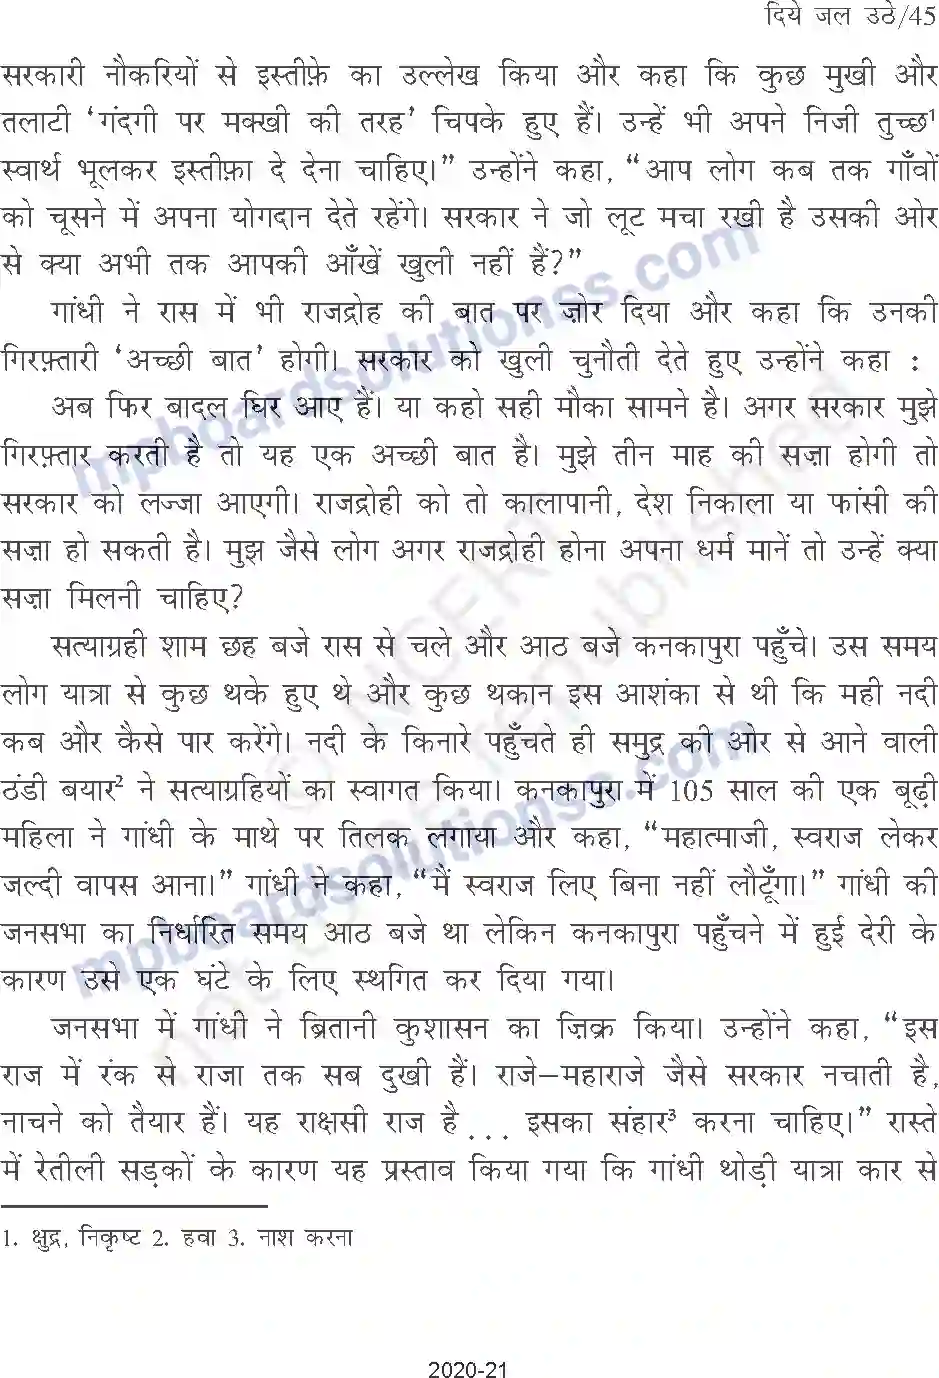 दिये जल उठे/45
सरकारी नौकरियों से इस्तीफ़े का उल्लेख किया और कहा कि कुछ मुखी और
तलाटी ‘गंदगी पर मक्खी की तरह’ चिपके हुए हैं। उन्हें भी अपने निजी तुच्छ¹
स्वार्थ भूलकर इस्तीफ़ा दे देना चाहिए।” उन्होंने कहा, “आप लोग कब तक गाँवों
को चूसने में अपना योगदान देते रहेंगे। सरकार ने जो लूट मचा रखी है उसकी ओर
से क्या अभी तक आपकी आँखें खुली नहीं हैं?”
गांधी ने रास में भी राजद्रोह की बात पर ज़ोर दिया और कहा कि उनकी
गिरफ़्तारी ‘अच्छी बात’ होगी। सरकार को खुली चुनौती देते हुए उन्होंने कहा :
अब फिर बादल घिर आए हैं। या कहो सही मौका सामने है। अगर सरकार मुझे
गिरफ़्तार करती है तो यह एक अच्छी बात है। मुझे तीन माह की सज़ा होगी तो
सरकार को लज्जा आएगी। राजद्रोही को तो कालापानी, देश निकाला या फांसी की
सज़ा हो सकती है। मुझ जैसे लोग अगर राजद्रोही होना अपना धर्म मानें तो उन्हें क्या
सज़ा मिलनी चाहिए?
सत्याग्रही शाम छह बजे रास से चले और आठ बजे कनकापुरा पहुँचे। उस समय
लोग यात्रा से कुछ थके हुए थे और कुछ थकान इस आशंका से थी कि मही नदी
कब और कैसे पार करेंगे। नदी के किनारे पहुँचते ही समुद्र की ओर से आने वाली
ठंडी बयार² ने सत्याग्रहियों का स्वागत किया। कनकापुरा में 105 साल की एक बूढ़ी
महिला ने गांधी के माथे पर तिलक लगाया और कहा, “महात्माजी, स्वराज लेकर
जल्दी वापस आना।” गांधी ने कहा, “मैं स्वराज लिए बिना नहीं लौटूँगा।” गांधी की
जनसभा का निर्धारित समय आठ बजे था लेकिन कनकापुरा पहुँचने में हुई देरी के
कारण उसे एक घंटे के लिए स्थगित कर दिया गया।
जनसभा में गांधी ने ब्रितानी कुशासन का ज़िक्र किया। उन्होंने कहा, “इस
राज में रंक से राजा तक सब दुखी हैं। राजे–महाराजे जैसे सरकार नचाती है,
नाचने को तैयार हैं। यह राक्षसी राज है... इसका संहार³ करना चाहिए।” रास्ते
में रेतीली सड़कों के कारण यह प्रस्ताव किया गया कि गांधी थोड़ी यात्रा कार से
1. क्षुद्र, निकृष्ट 2. हवा 3. नाश करना
2020-21
mpboardsolutionss.com
mpboardsolutionss.com
© NCERT
not to be republished